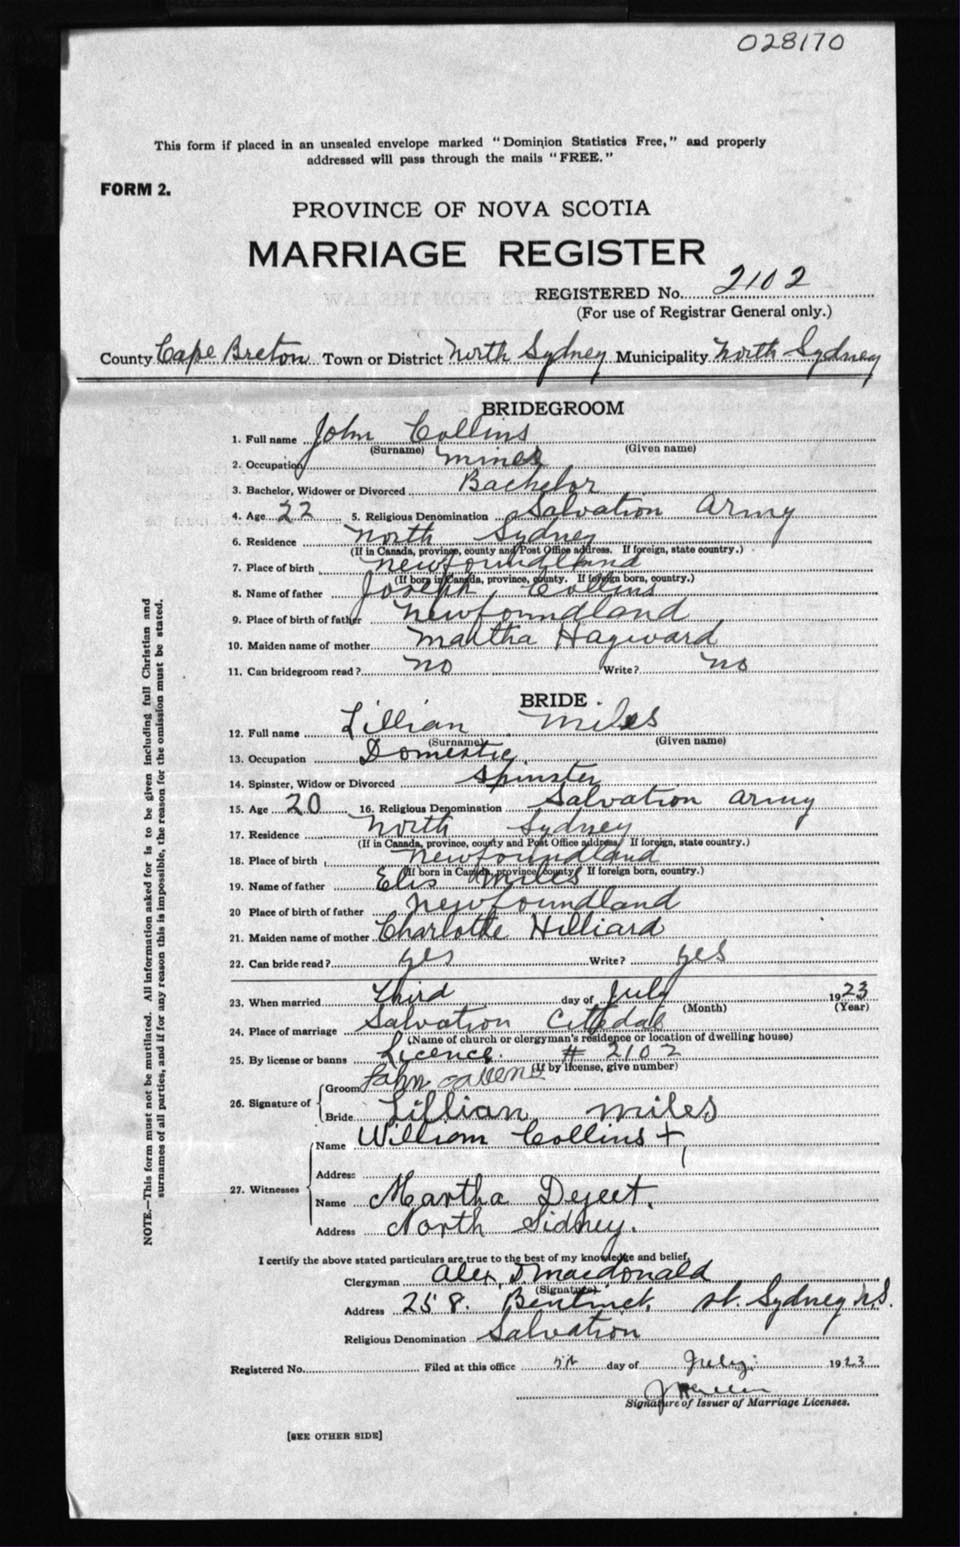 028170
This form if placed in an unsealed envelope marked "Dominion Statistics Free," and properly
addressed will pass through the mails "FREE."
FORM 2.
PROVINCE OF NOVA SCOTIA
MARRIAGE REGISTER
REGISTERED No. 2102
(For use of Registrar General only.)
County Cape Breton Town or District North Sydney Municipality North Sydney
BRIDEGROOM
1. Full name John Collins
(Surname) (Given name)
2. Occupation Miner
3. Bachelor, Widower or Divorced Bachelor
4. Age 22 5. Religious Denomination Salvation Army
6. Residence North Sydney
(If in Canada, province, county and Post Office address. If foreign, state country.)
7. Place of birth Newfoundland
(If born in Canada, province, county. If foreign born, country.)
8. Name of father Joseph Collins
9. Place of birth of father Newfoundland
10. Maiden name of mother Martha Hayward
11. Can bridegroom read? No Write? No
BRIDE
12. Full name Lillian Miles
(Surname) (Given name)
13. Occupation Domestic
14. Spinster, Widow or Divorced Spinster
15. Age 20 16. Religious Denomination Salvation Army
17. Residence North Sydney
(If in Canada, province, county and Post Office address. If foreign, state country.)
18. Place of birth Newfoundland
(If born in Canada, province, county. If foreign born, country.)
19. Name of father Elis Miles
20 Place of birth of father Newfoundland
21. Maiden name of mother Charlotte Hilliard
22. Can bride read? yes Write? yes
23. When married Third day of July 1923
(Month) (Year)
24. Place of marriage Salvation Citedal
(Name of church or clergyman's residence or location of dwelling house)
25. By license or banns Licence. # 2102
(If by license, give number)
26. Signature of Groom John
Bride Lillian Miles
27. Witnesses Name William Collins +
Address
Name Martha Dejeet.
Address North Sidney.
I certify the above stated particulars are true to the best of my knowledge and belief,
Clergyman Alex, D Macdonald
(Signature)
Address 258. Bentinck, st. Sydney N.S.
Religious Denomination Salvation
Registered No. Filed at this office day of July 1923
Signature of Issuer of Marriage Licenses.
[SEE OTHER SIDE]
NOTE.—This form must not be mutilated. All information asked for is to be given including full Christian and
surnames of all parties, and if for any reason this is impossible, the reason for the omission must be stated.